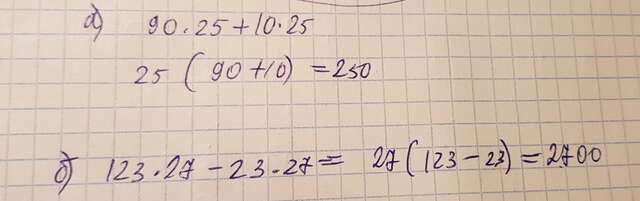 а) 90·25+10·25
25 (90+10) =250
б) 123·27-23·27= 27(123-23)=2700